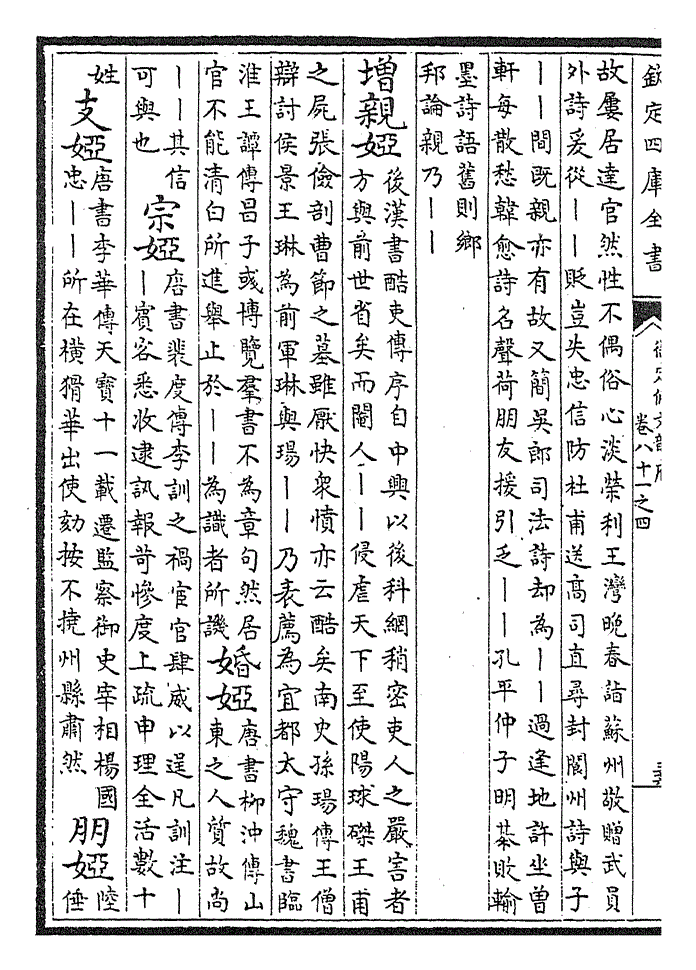 欽定四庫全書
卷八十一之四
故屢居達官然性不偶俗心淡榮利王灣晚春詣蘇州敬贈武員
外詩爰從丨丨貶豈失忠信防杜甫送高司直尋封閬州詩與子
丨丨間既親亦有故又簡吳郎司法詩却為丨丨過逢地許坐曽
軒每散愁韓愈詩名聲荷朋友援引乏丨丨孔平仲子明棊敗輸
墨詩語舊則鄉
邦論親乃丨丨
增親婭
後漢書酷吏傳序自中興以後科網稍密吏人之嚴害者
方與前世省矣而閹人丨丨侵虐天下至使陽球磔王甫
之屍張儉剖曹節之墓雖厭快衆憤亦云酷矣南史孫瑒傳王僧
辯討侯景王琳為前軍琳與瑒丨丨乃表薦為宜都太守魏書臨
淮王譚傳昌子彧博覽羣書不為章句然居
官不能清白所進舉止於丨丨為識者所譏
婚婭
唐書柳沖傳山
東之人質故尚
丨丨其信
可與也
宗婭
唐書裴度傳李訓之禍宦官肆威以逞凡訓注丨
丨賓客悉收逮訊報苛慘度上疏申理全活數十
姓
支婭
唐書李華傳天寶十一載遷監察御史宰相楊國
忠丨丨所在橫猾華出使劾按不撓州縣肅然
朋婭
陸
倕